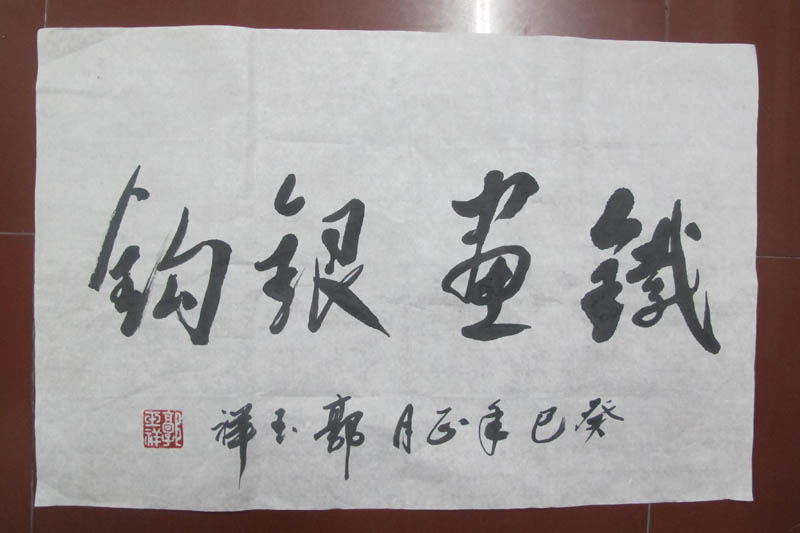 鐵畫銀鈎
癸巳年正月郭玉祥
郭玉祥